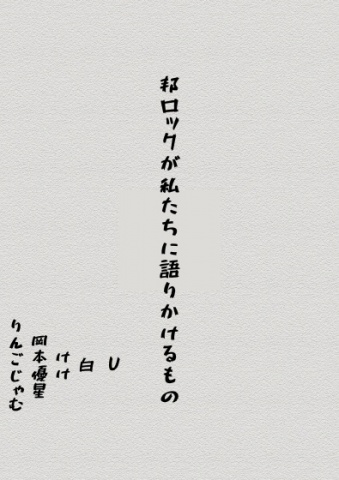 邦ロックが私たちに語りかけるもの
U
白
けけ
岡本優星
りんごじゃむ